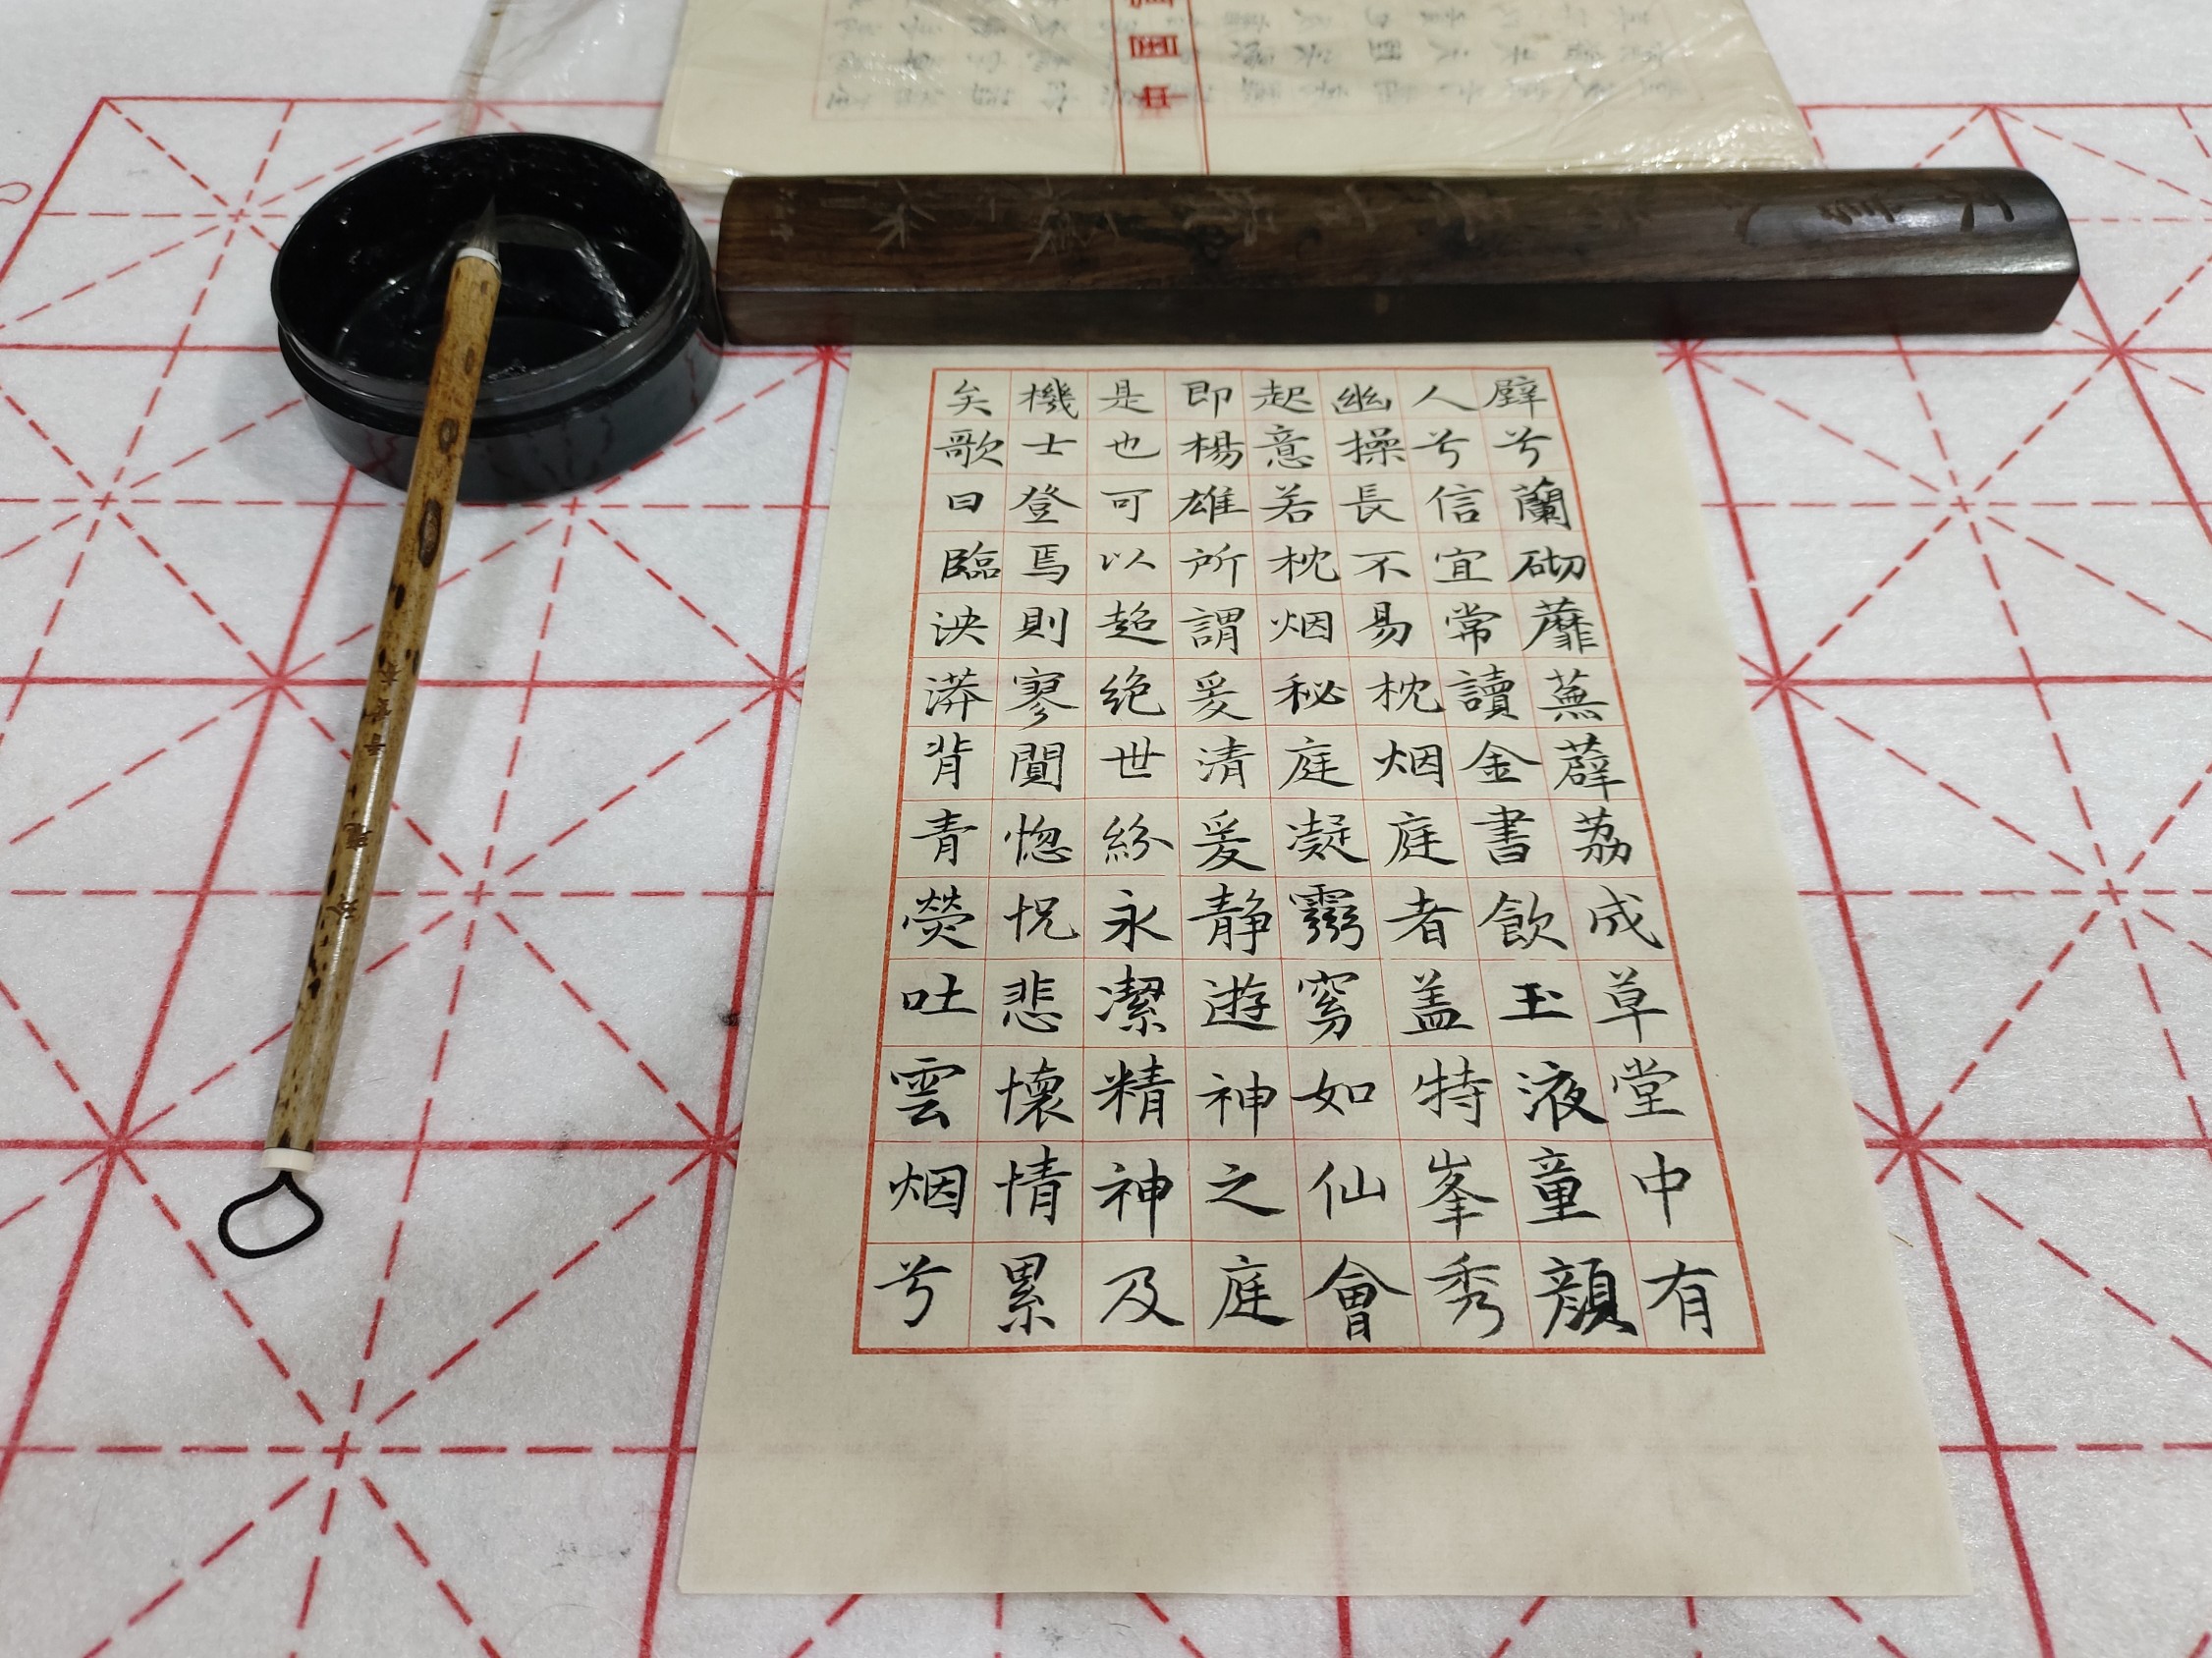 壁兮蘭砌蘼蕪薜荔成草堂中有
人兮信宜常讀金書飲玉液童顏
幽操長不易枕烟庭者盖特峯秀
起意若枕烟秘庭凝霛窈如仙會
即楊雄所謂爰清爰静遊神之庭
是也可以超絶世紛永潔精神及
機士登焉則寥閴惚怳悲懷情累
矣歌曰臨泱漭背青熒吐雲烟兮